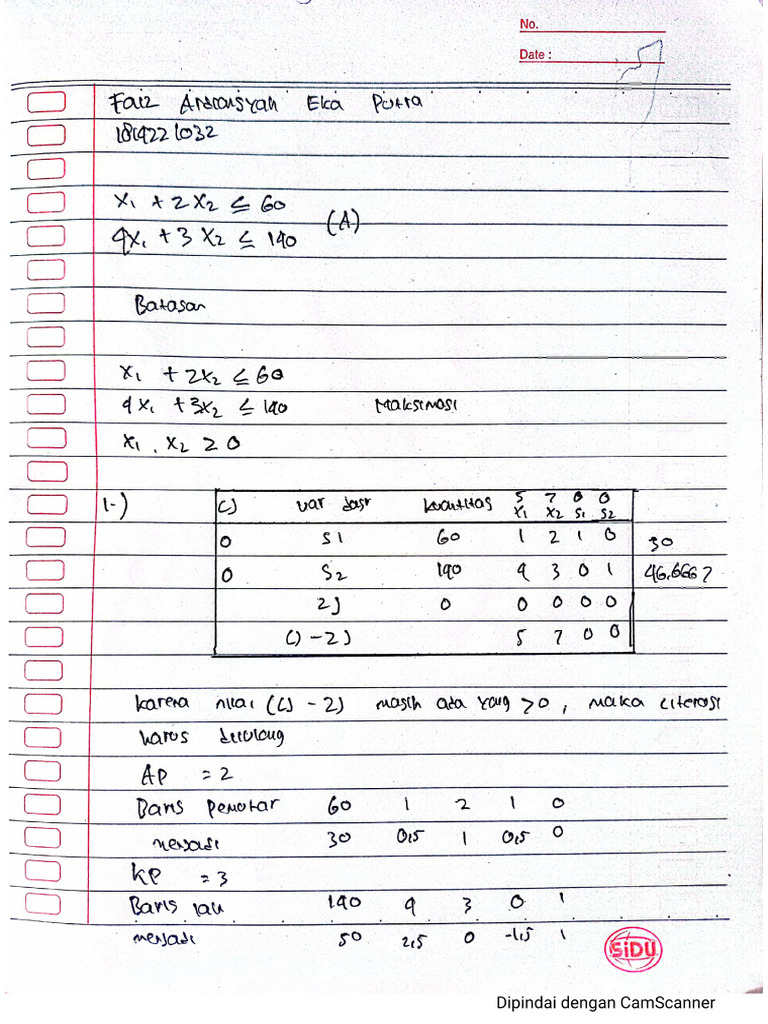 No.
Date :
Faiz Andriansyah Eka Putra
x₁ + 2x₂ ≤ 60
(A)
4x₁ + 3x₂ ≤ 140
Batasan
x₁ + 2x₂ ≤ 60
4x₁ + 3x₂ ≤ 140 Maksimasi
x₁, x₂ ≥ 0
5 7 0 0
1-) CJ var dasr kuantitas x₁ x₂ S₁ S₂
0 S1 60 1 2 1 0 30
0 S2 140 4 3 0 1 46,6667
ZJ 0 0 0 0 0
CJ - ZJ 5 7 0 0
karena nilai (CJ - Z) masih ada yang > 0, maka literasi
harus diulang
AP = 2
Baris pemutar 60 1 2 1 0
menjadi 30 0,5 1 0,5 0
KP = 3
Baris lain 140 4 3 0 1
menjadi 50 2,5 0 -1,5 1
SiDU
Dipindai dengan CamScanner